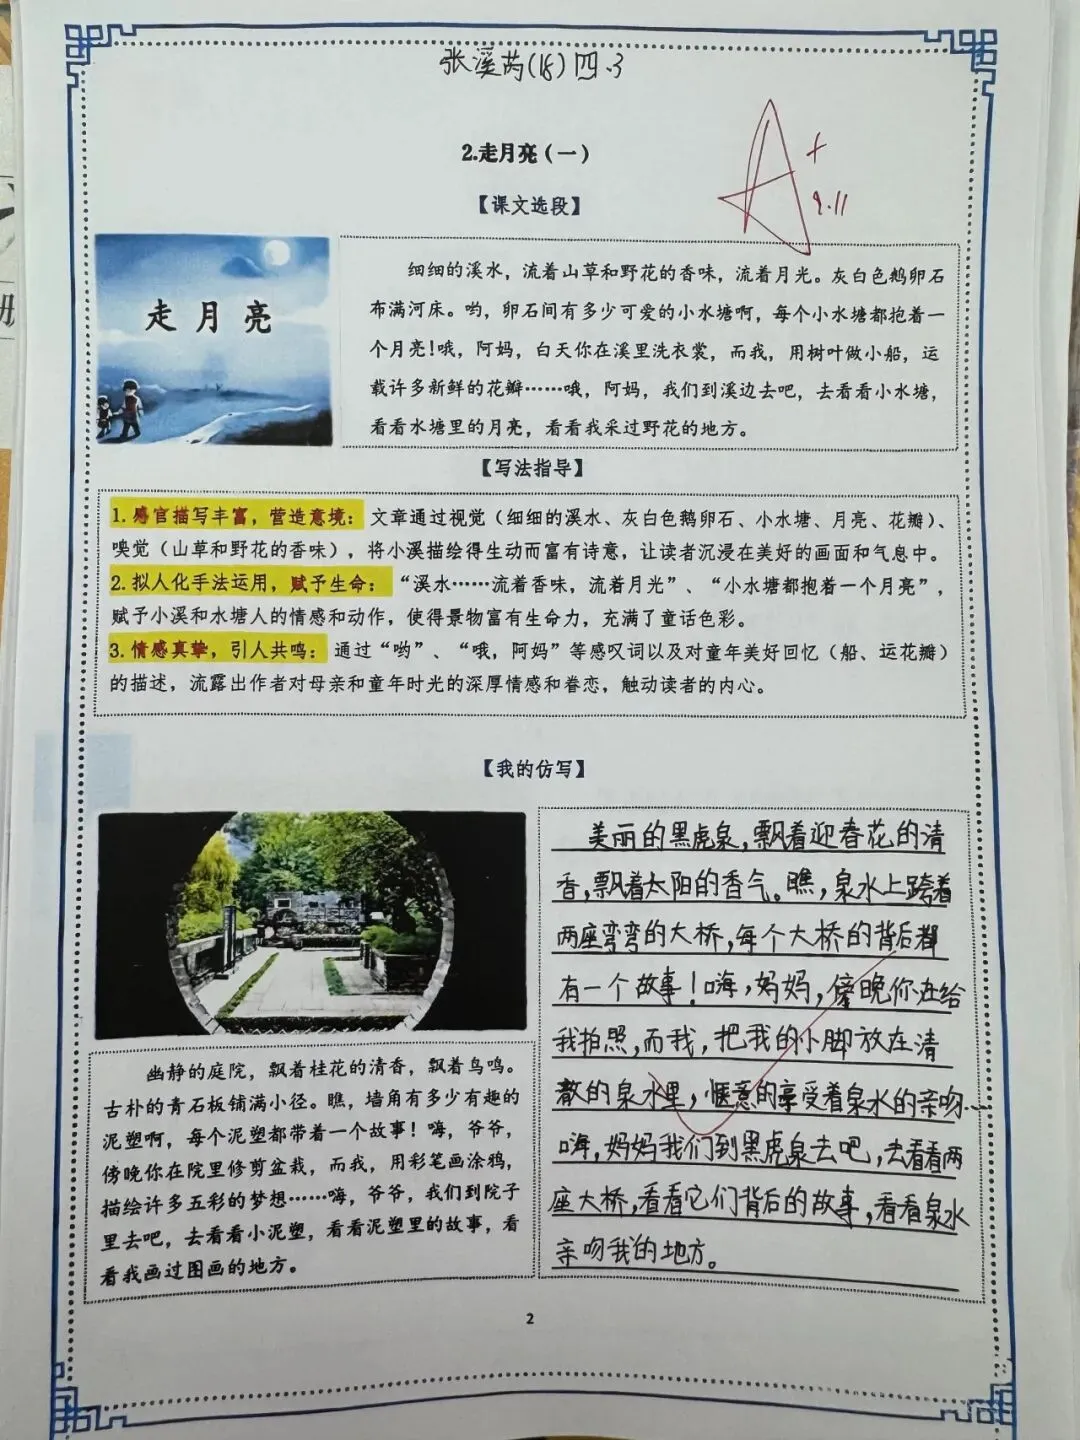 张溪芮(18)四.3
A+
9.11
2.走月亮(一)
【课文选段】
走月亮
细细的溪水，流着山草和野花的香味，流着月光。灰白色鹅卵石
布满河床。哟，卵石间有多少可爱的小水塘啊，每个小水塘都抱着一
个月亮！哦，阿妈，白天你在溪里洗衣裳，而我，用树叶做小船，运
载许多新鲜的花瓣……哦，阿妈，我们到溪边去吧，去看看小水塘，
看看水塘里的月亮，看看我采过野花的地方。
【写法指导】
1.感官描写丰富，营造意境：文章通过视觉（细细的溪水、灰白色鹅卵石、小水塘、月亮、花瓣）、
嗅觉（山草和野花的香味），将小溪描绘得生动而富有诗意，让读者沉浸在美好的画面和气息中。
2.拟人化手法运用，赋予生命：“溪水……流着香味，流着月光”、“小水塘都抱着一个月亮”，
赋予小溪和水塘人的情感和动作，使得景物富有生命力，充满了童话色彩。
3.情感真挚，引人共鸣：通过“哟”、“哦，阿妈”等感叹词以及对童年美好回忆（船、运花瓣）
的描述，流露出作者对母亲和童年时光的深厚情感和眷恋，触动读者的内心。
【我的仿写】
幽静的庭院，飘着桂花的清香，飘着鸟鸣。
古朴的青石板铺满小径。瞧，墙角有多少有趣的
泥塑啊，每个泥塑都带着一个故事！嗨，爷爷，
傍晚你在院里修剪盆栽，而我，用彩笔画涂鸦，
描绘许多五彩的梦想……嗨，爷爷，我们到院子
里去吧，去看看小泥塑，看看泥塑里的故事，看
看我画过图画的地方。
美丽的黑虎泉，飘着迎春花的清
香，飘着太阳的香气。瞧，泉水上跨着
两座弯弯的大桥，每个大桥的背后都
有一个故事！嗨，妈妈，傍晚你在给
我拍照，而我，把我的小脚放在清
澈的泉水里，惬意的享受着泉水的亲吻……
嗨，妈妈我们到黑虎泉去吧，去看看两
座大桥，看看它们背后的故事，看看泉水
亲吻我的地方。
2